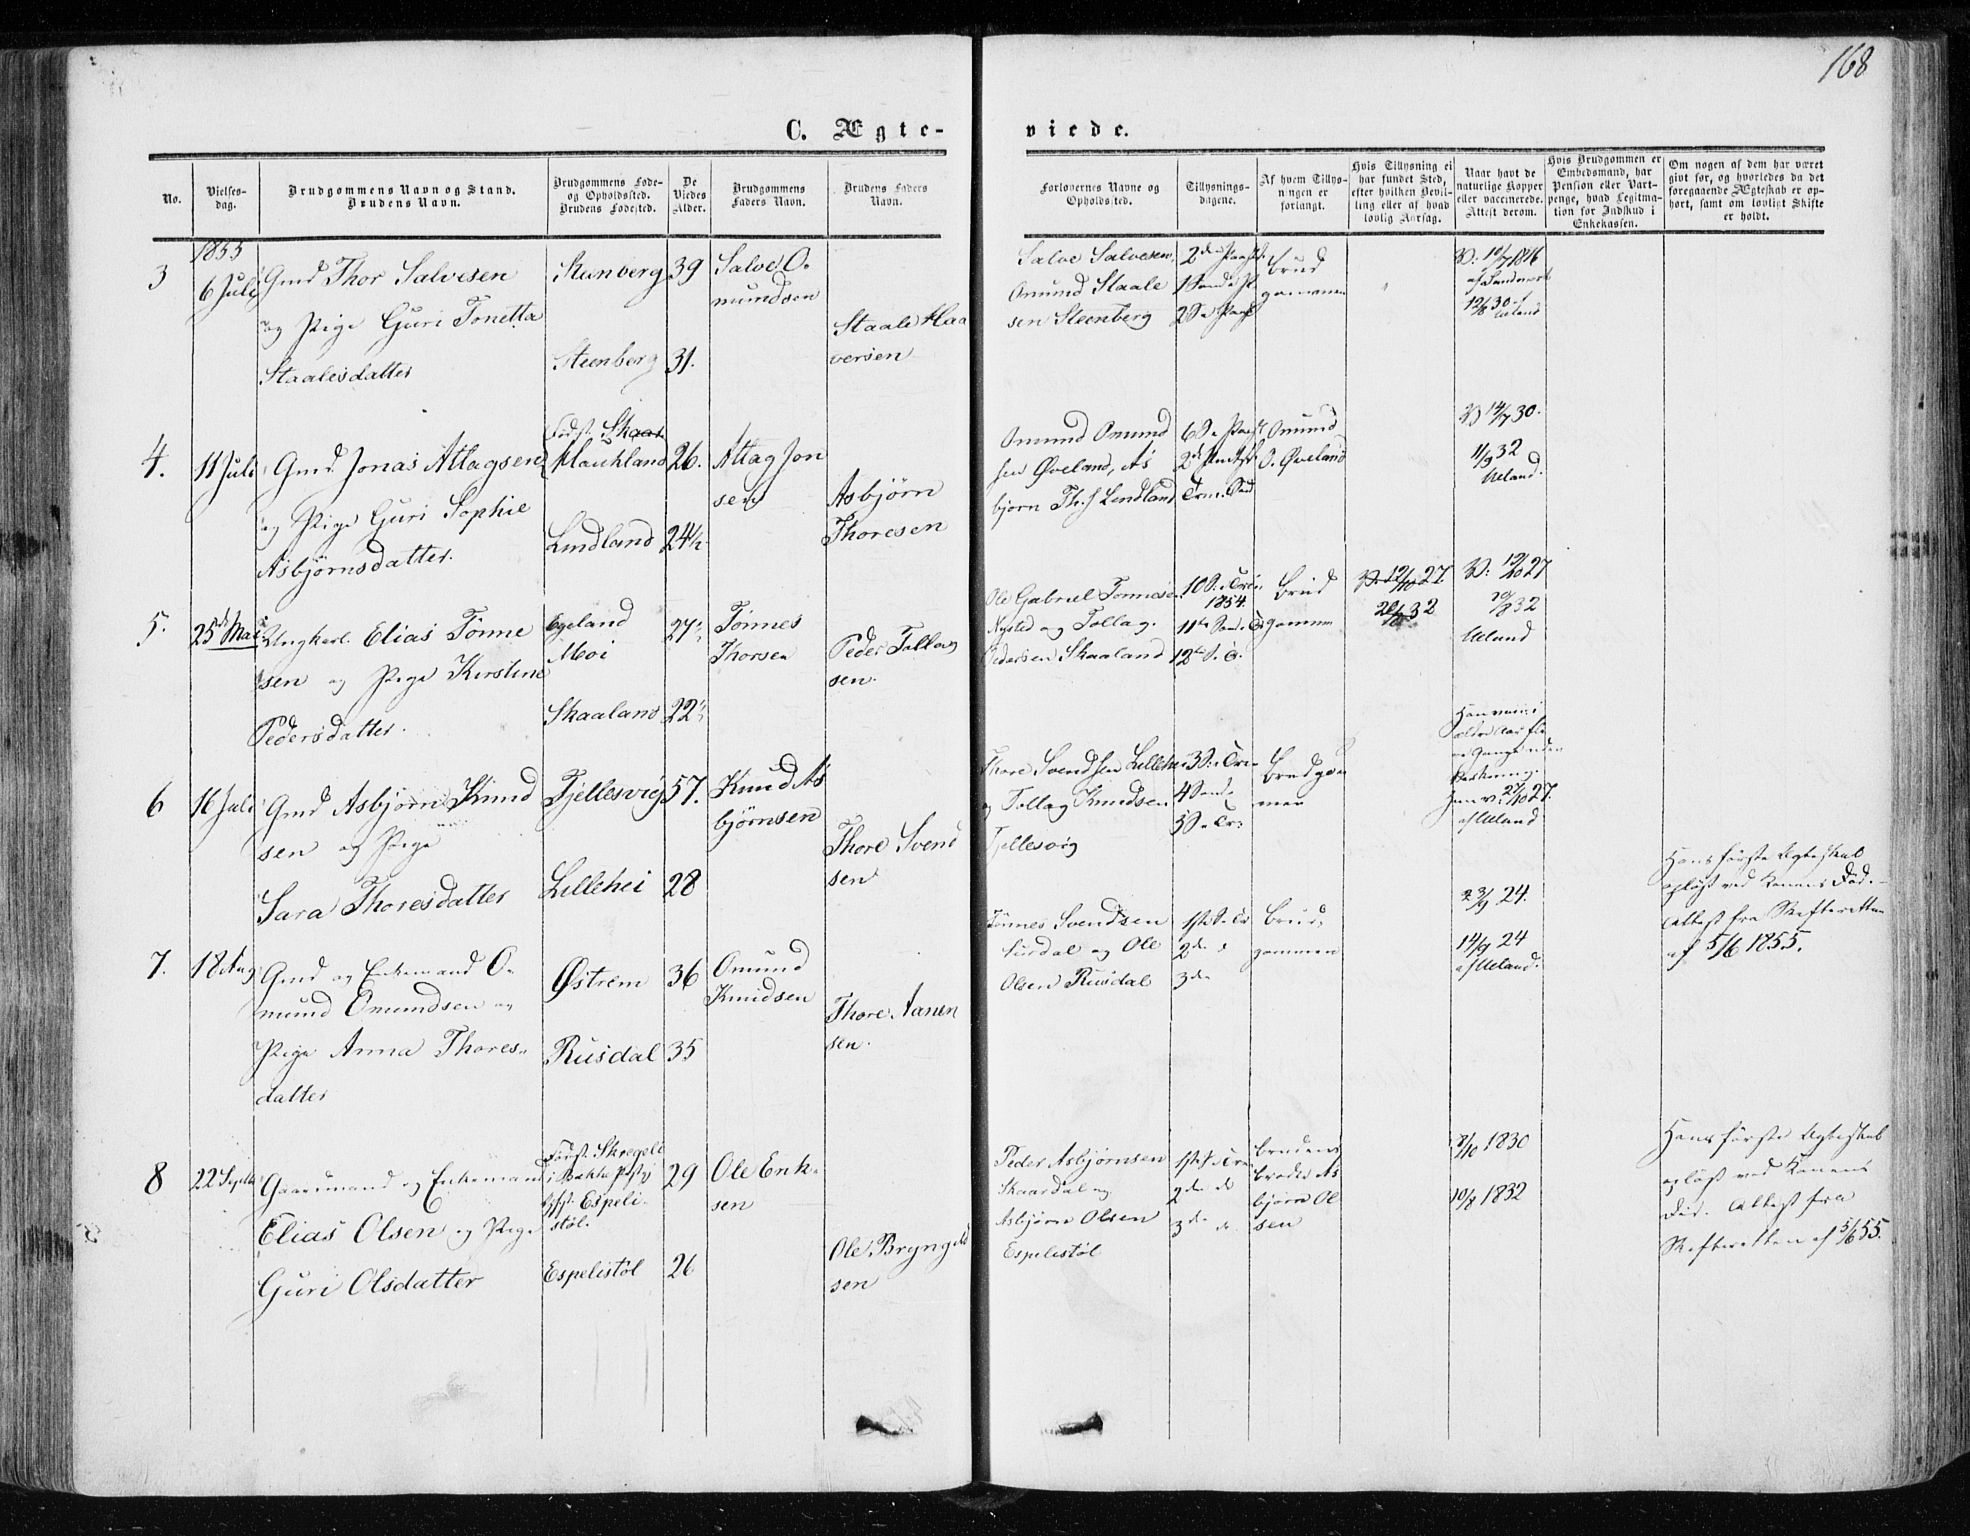 168
C. Ægte-
viede.
No.
Vielses-
dag.
Brudgommens Navn og Stand.
Brudens Navn.
Brudgommens Føde-
og Opholdssted.
Brudens Fødested.
De
Viedes
Alder.
Brudgommens
Faders Navn.
Brudens Faders
Navn.
Forlovernes Navne og
Opholdssted.
Tillysnings-
dagene.
Af hvem Tillys-
ningen er
forlangt.
Hvis Tillysning ei
har fundet Sted,
efter hvilken Bevil-
ling eller af hvad
lovlig Aarsag.
Naar havt de
naturlige Kopper
eller vaccinerede.
Attest derom.
Hvis Brudgommen er
Embedsmand, har
Pension eller Vart-
penge, hvad Legitima-
tion for Indskud i
Enkekassen.
Om nogen af dem har været
givt før, og hvorledes da det
foregaaende Ægteskab er op-
hørt, samt om lovligt Skifte
er holdt.
1855
3
6 Juli
Gmd Thor Salvesen
og Pige Guri Tonetta
Staalesdatter
Steenberg
Steenberg
39
31.
Salve O-
mundsen
Staale Haa
versen
Salve Salvesen,
Omund Staale
sen Steenberg
Brud
gommen
4.
11 Juli
Gmd Jonas Atlagsen
og Pige Guri Sophie
Asbjørnsdatter.
Haukland
Lindland
26.
24½
Atlag Jon
sen
Asbjørn
Thoresen
Omund Omund
sen Øveland, As
bjørn Lindland
Omund
O. Øveland
14/7 30.
11/9 32
Ueland.
5.
25de Mai
Ungkarl Elias Tønne
sen og Pige Kirstine
Pedersdatter.
Egeland
Moi
Skaaland
27½
22½
Tønnes
Thorsen
Peder Tollag
sen.
Ole Gabriel Tønnesen
Nysted og Tollag
Pedersen Skaaland
1854.
Brud
gommen
Ueland
6
16 Juli
Gmd Asbjørn Knud
sen og Pige
Sara Thoresdatter
Fjellesvig
Lillehei
57.
28
Knud As
bjørnsen
Thore Svend
sen
Thore Svendsen Lillehei
og Tollag Knudsen
Fjellesvig
Brudgom
men
af Ueland
7.
18 Aug
Gmd og Enkemand O-
mund Omundsen og
Pige Anna Thores-
datter
Østrem
Rusdal
36
35
Omund
Knudsen
Thore Aanen
sen.
Tønnes Svendsen
Surdal og Ole
Olsen Rusdal
2de
3de
Brud-
gommen
23/9 24.
14/9 24
af Ueland.
Hans første Ægteskab
opløst ved Konens Død.
Attest fra Skifteretten
af 5/6 1855.
8
22 Septbr
Gaardmand og Enkemand
Elias Olsen og Pige
Guri Olsdatter
Født Skregeli
i Bakke Præstgj
Espeli-
støl.
Espelistøl
29
26
Ole Enk-
sen
Ole Bryngels
sen
Peder Asbjørnsen
Skaardal og
Asbjørn Olsen
Espelistøl
2de
3de
Brudens
Broder As
bjørn Ol
sen
8/10 1830
10/8 1832
Hans første Ægteskab
opløst ved Konens
Død. Attest fra
Skifteretten af 5/6 55.